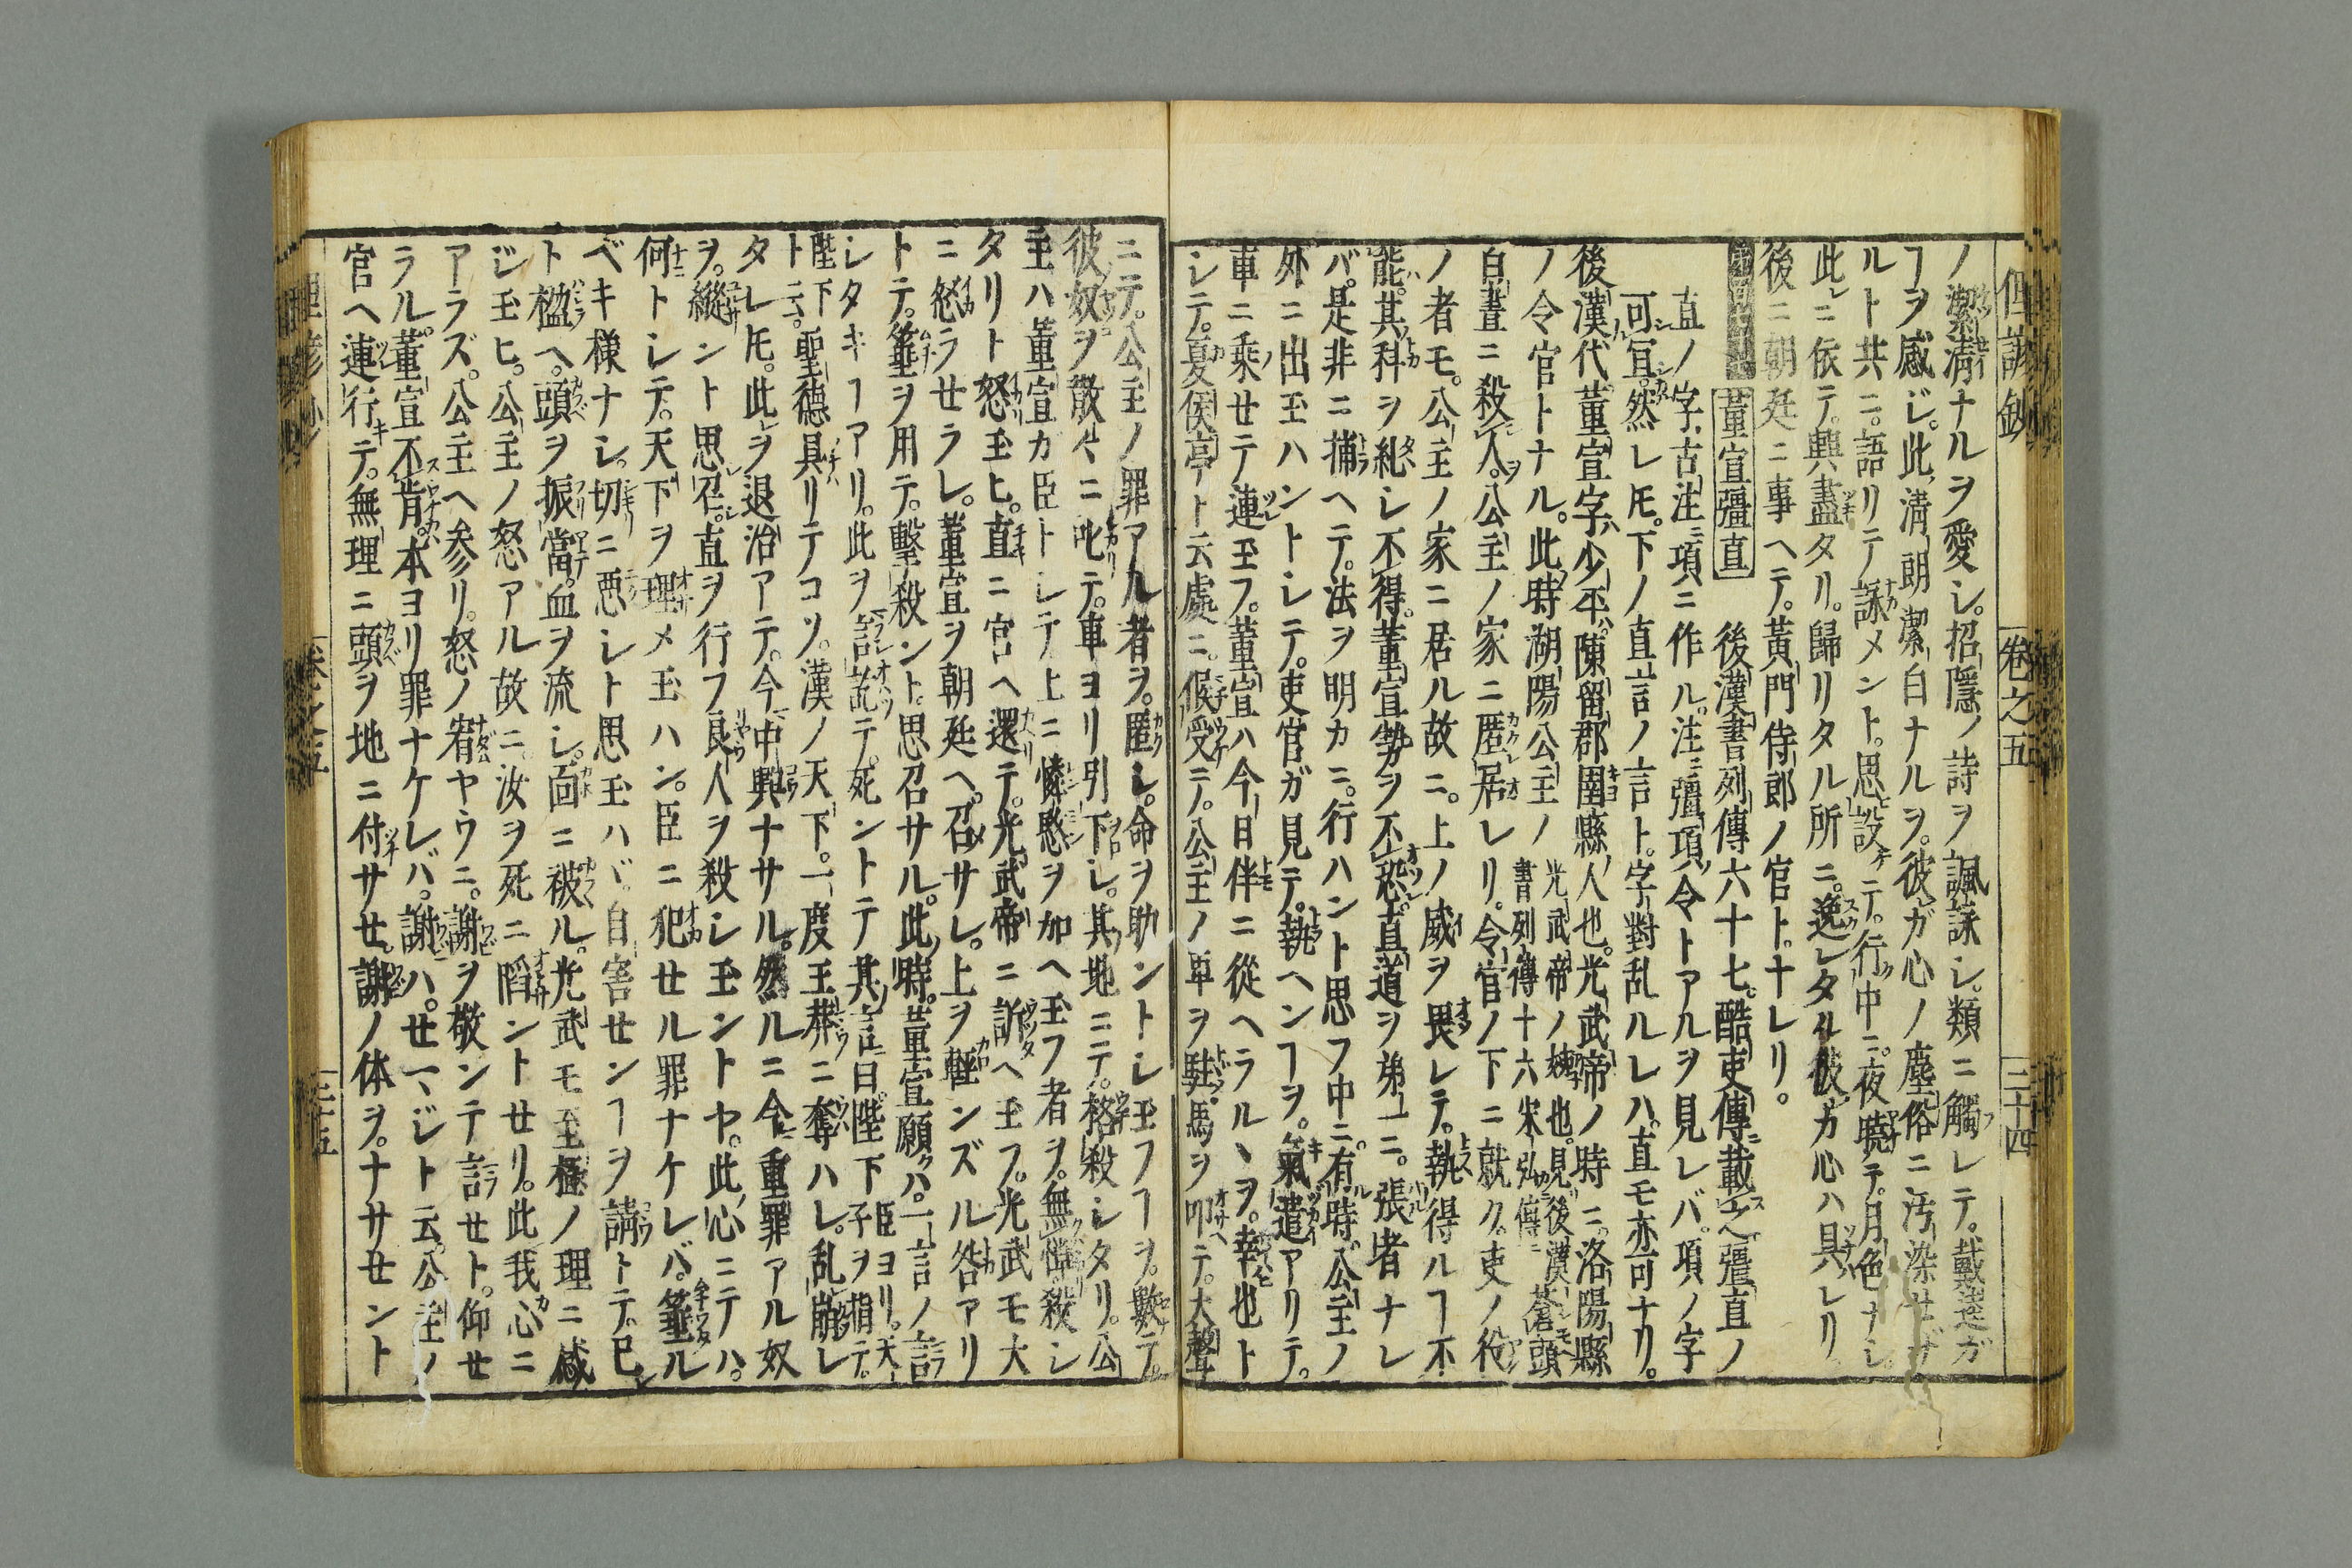 俚諺鈔 卷之五 三十四
ノ潔清ナルヲ愛シ。招隱ノ詩ヲ諷詠シ。類ニ觸レテ。戴逵ガ
ヿヲ感ジ。此清朗潔白ナルヲ。彼ガ心ノ塵俗ニ汚染セザ
ルト共ニ。語リテ詠メント。思設ケニテ。行ク中ニ。夜曉テ。月色ナシ。
此ニ依テ。興盡タリ。歸リタル所ニ。逸レタル彼カ心ハ具レリ。
後ニ朝廷ニ事ヘテ。黃門侍郎ノ官ト。ナレリ。
董宣彊直 後漢書列傳六十七。酷吏傳ニ載之。彊直ノ
直ノ字。古注ニ項ニ作ル。注ニ彊項令トアルヲ見レバ。項ノ字
可宜。然レ𪜈。下ノ直言ノ言ト。字對乱ルレハ。直モ亦可ナリ。
後漢代。董宣字ハ少平。陳留郡圉縣ノ人也。光武帝ノ時ニ。洛陽縣
ノ令官トナル。此時湖陽公主ノ 光武帝ノ姉也。見後漢書列傳十六宋弘傳ニ 蒼頭
白晝ニ殺人。公主ノ家ニ匿居レリ。令官ノ下ニ就ク。吏ノ役
ノ者モ。公主ノ家ニ居ル故ニ。上ノ威ヲ畏レテ。執得ルヿ不
能。其科ヲ糺シ不得。董宣勢ヲ不恐。直道ヲ第一ニ。張者ナレ
バ。是非ニ捕ヘテ。法ヲ明カニ。行ハント思フ中ニ。有時。公主ノ
外ニ出玉ハントシテ。吏官ガ見テ。執ヘンヿヲ。氣遣アリテ。
車ニ乗セテ連玉フ。董宣ハ今日伴ニ從ヘラルヽヲ。幸也ト
シテ。夏侯亭ト云處ニ。候受ニテ。公主ノ車ヲ駐。馬ヲ叩テ。大聲
ニテ。公主ノ罪アル者ヲ。匿シ。命ヲ助ントシ玉フヿヲ。數テ。
彼奴ヲ散々ニ叱テ。車ヨリ引下シ。其地ニテ。格殺シタリ。公
主ハ董宣カ臣トシテ上ニ憐愍ヲ加ヘ玉フ者ヲ。無殺シ
タリト怒玉ヒ。直ニ宮ヘ還テ。光武帝ニ訴ヘ玉フ。光武モ大
ニ怒ラセラレ。董宣ヲ朝廷ヘ。召サレ。上ヲ輕ンズル咎アリ
トテ。箠ヲ用テ。擊殺ント。思召サル。此時。董宣願クハ。一言ノ言
シタキヿアリ。此ヲ言訖テ。死ントテ其言曰。陛下 臣ヨリ天子ヲ指テ。
陛下ト云。 聖德具リテコソ。漢ノ天下。一度王莽ニ奪ハレ。乱崩レ
タレ𪜈。此ヲ退治アテ。今中興ナサル。然ルニ今重罪アル奴
ヲ。縱ント思召。直ヲ行フ良人ヲ殺シ玉ントヤ。此心ニテハ。
何トシテ。天下ヲ理メ玉ハン。臣ニ犯セル罪ナケレバ。箠ル
ベキ様ナシ。切ニ悪シト思玉ハヾ。自害センヿヲ請トテ。已
ト楹ヘ。頭ヲ振當。血ヲ流シ。面ニ被ル。光武モ至極ノ理ニ感
ジ玉ヒ。公主ノ怒アル故ニ。汝ヲ死ニ陷ントセリ。此我心ニ
アラズ。公主ヘ参リ。怒ノ宥ヤウニ。謝ヲ敬ンテ言セト。仰セ
ラル。董宣不肯。本ヨリ罪ナケレバ。謝ハ。セマジト云。公主ノ
官ヘ連行テ。無理ニ頭ヲ地ニ付サセ。謝ノ体ヲ。ナサセント